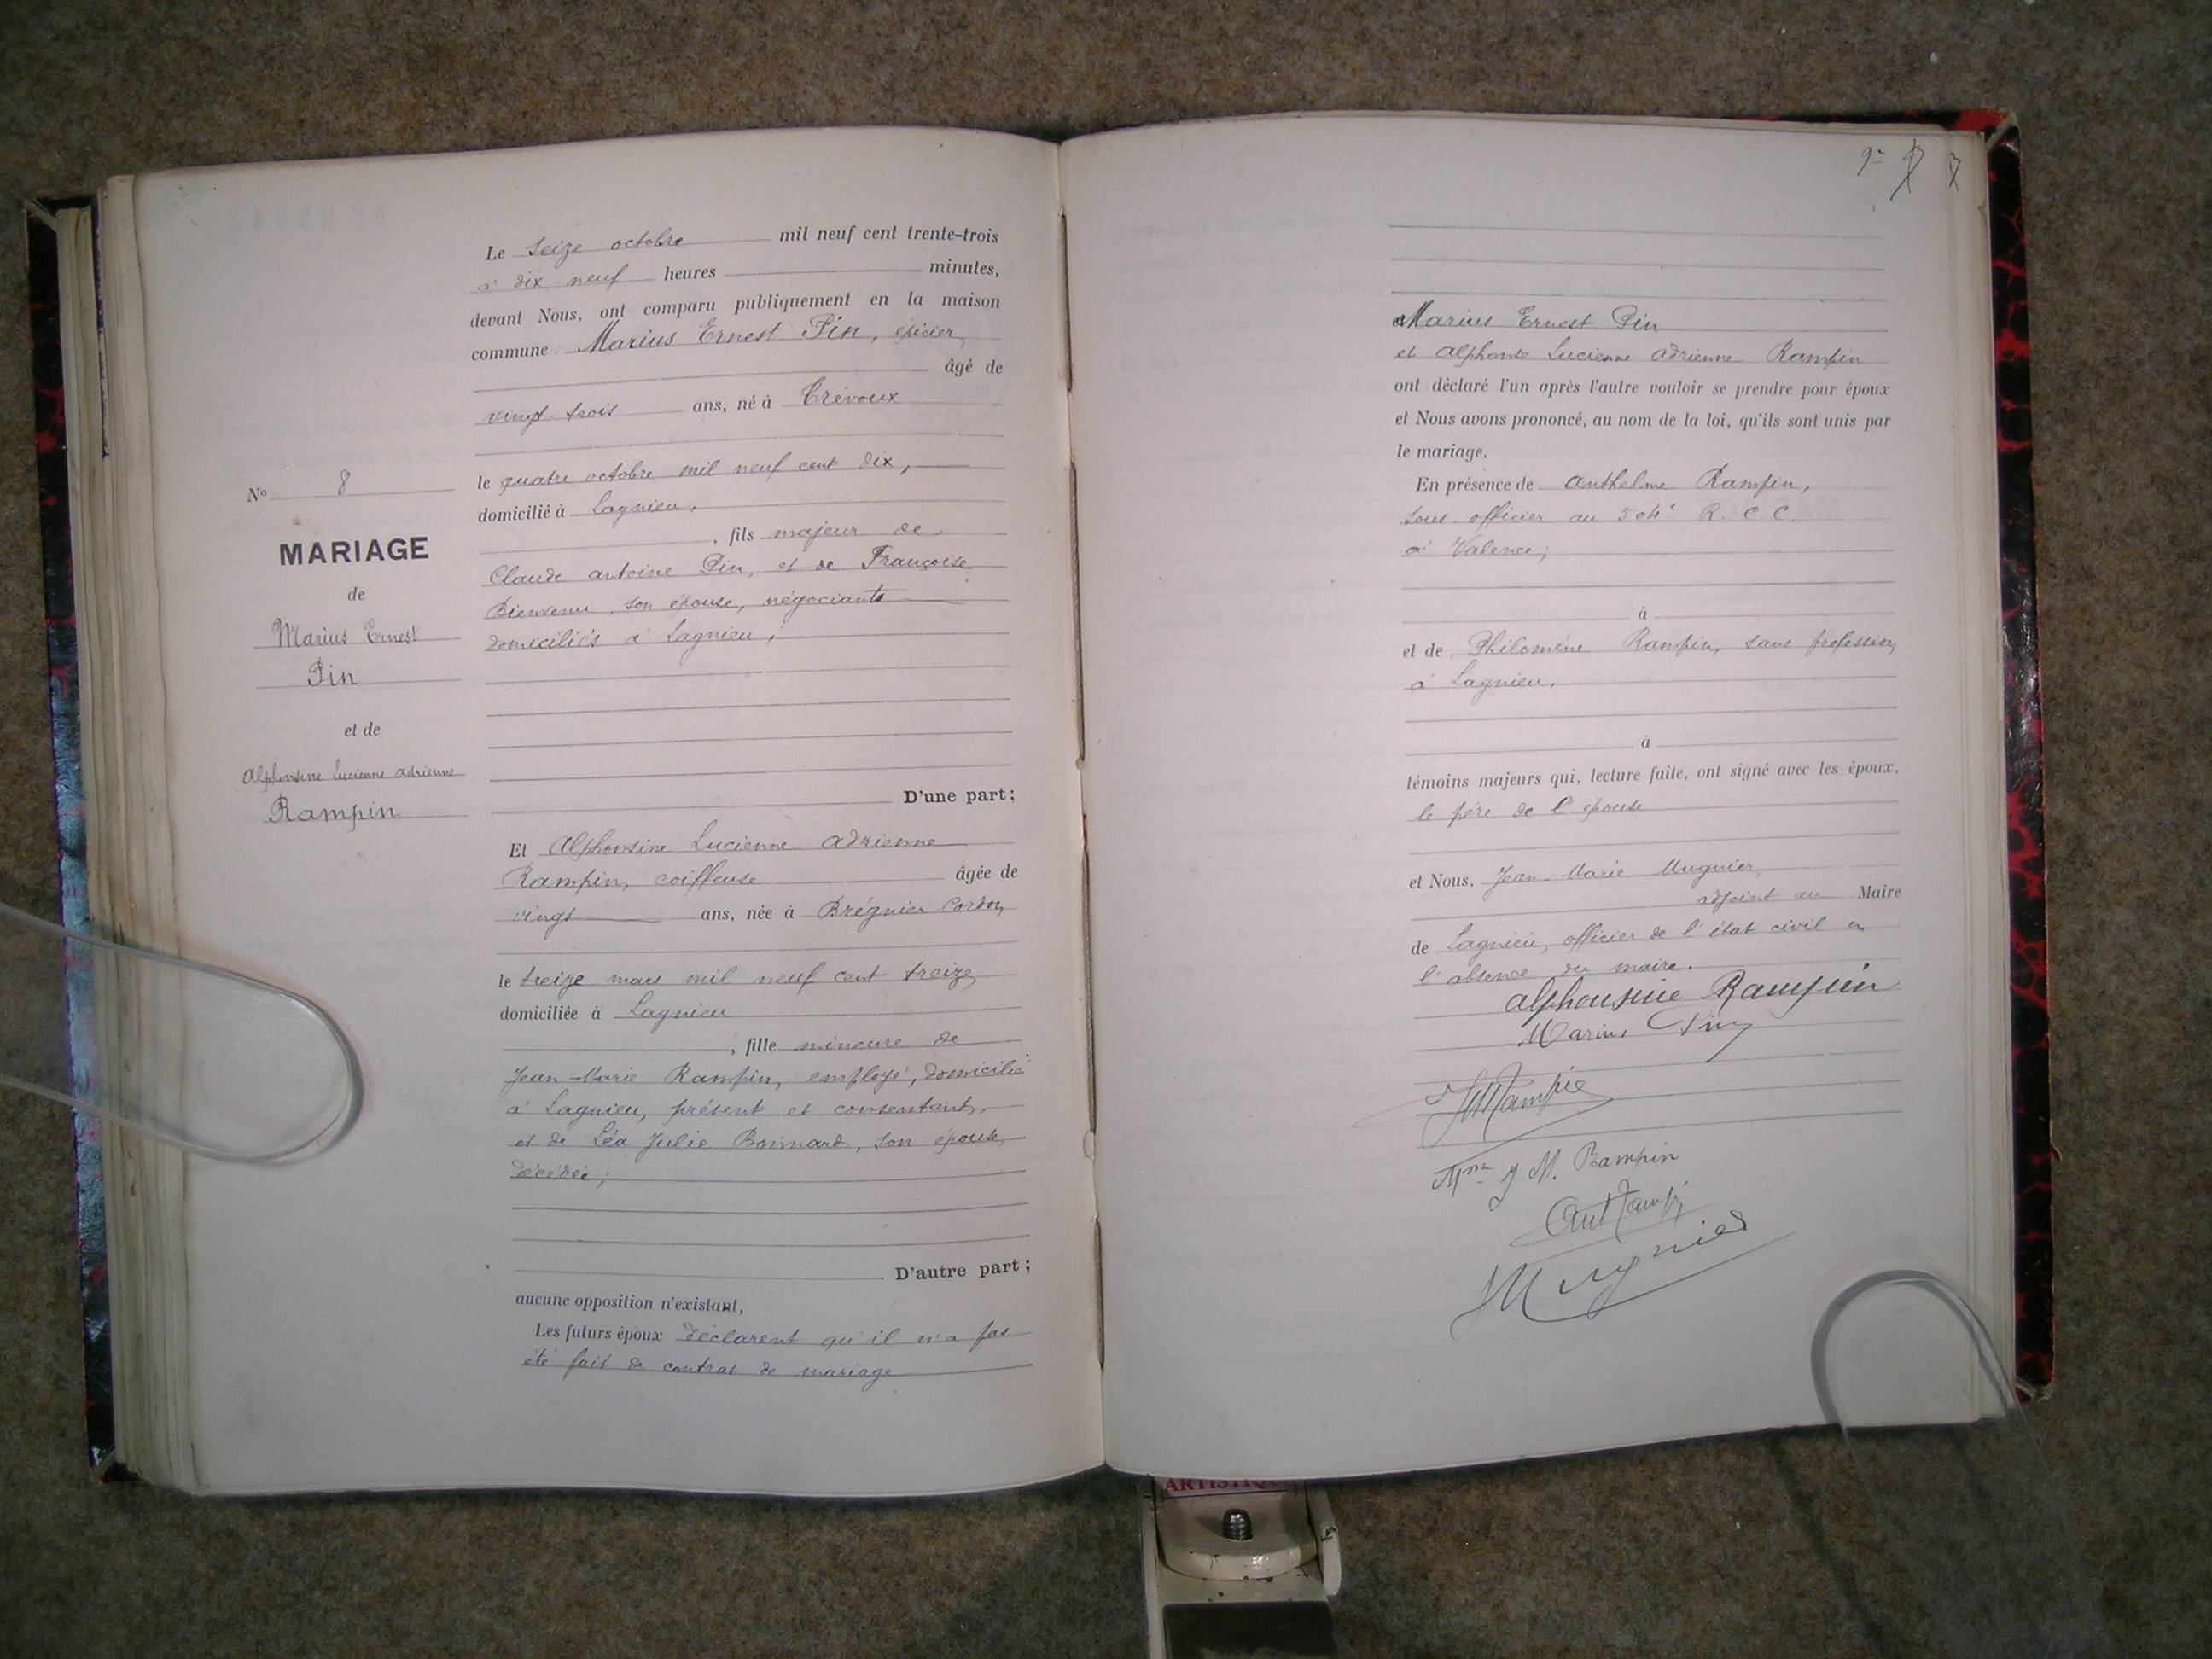 Le seize octobre mil neuf cent trente-trois
à dix neuf heures minutes,
devant Nous, ont comparu publiquement en la maison
commune Marius Ernest Pin, épicier,
âgé de
vingt-trois ans, né à Trévoux
le quatre octobre mil neuf cent dix,
domicilié à Lagnieu,
, fils majeur de
Claude antoine Pin, et de Françoise
Bienvenu, son épouse, négociants
domiciliés à Lagnieu,
D'une part;
Et Alphonsine Lucienne adrienne
Rampin, coiffeuse âgée de
vingt ans, née à Brégnier Cordon,
le treize mars mil neuf cent treize,
domiciliée à Lagnieu
, fille mineure de
Jean-Marie Rampin, employé, domicilié
à Lagnieu, présent et consentant,
et de Léa Julie Bonnard, son épouse,
décédée;
D'autre part;
aucune opposition n'existant,
Les futurs époux déclarent qu'il n'a pas
été fait de contrat de mariage
N° 8
MARIAGE
de
Marius Ernest
Pin
et de
Alphonsine Lucienne adrienne
Rampin
Marius Ernest Pin
et Lucienne adrienne Rampin
ont déclaré l'un après l'autre vouloir se prendre pour époux
et Nous avons prononcé, au nom de la loi, qu'ils sont unis par
le mariage.
En présence de anthelme Rampin,
sous officier au R. C. C.
à Valence;
à
et de Philomène Rampin, sans profession,
à Lagnieu.
à
témoins majeurs qui, lecture faite, ont signé avec les époux,
le père de l'épouse
et Nous, Jean-Marie Mugnier,
adjoint au Maire
de Lagnieu, officier de l'état civil en
l'absence du maire.
alphonsine Rampin
Marius Pin
JMRampin
Mme J M. Rampin
Ant Rampin
Mugnier
ARTISTIQUE